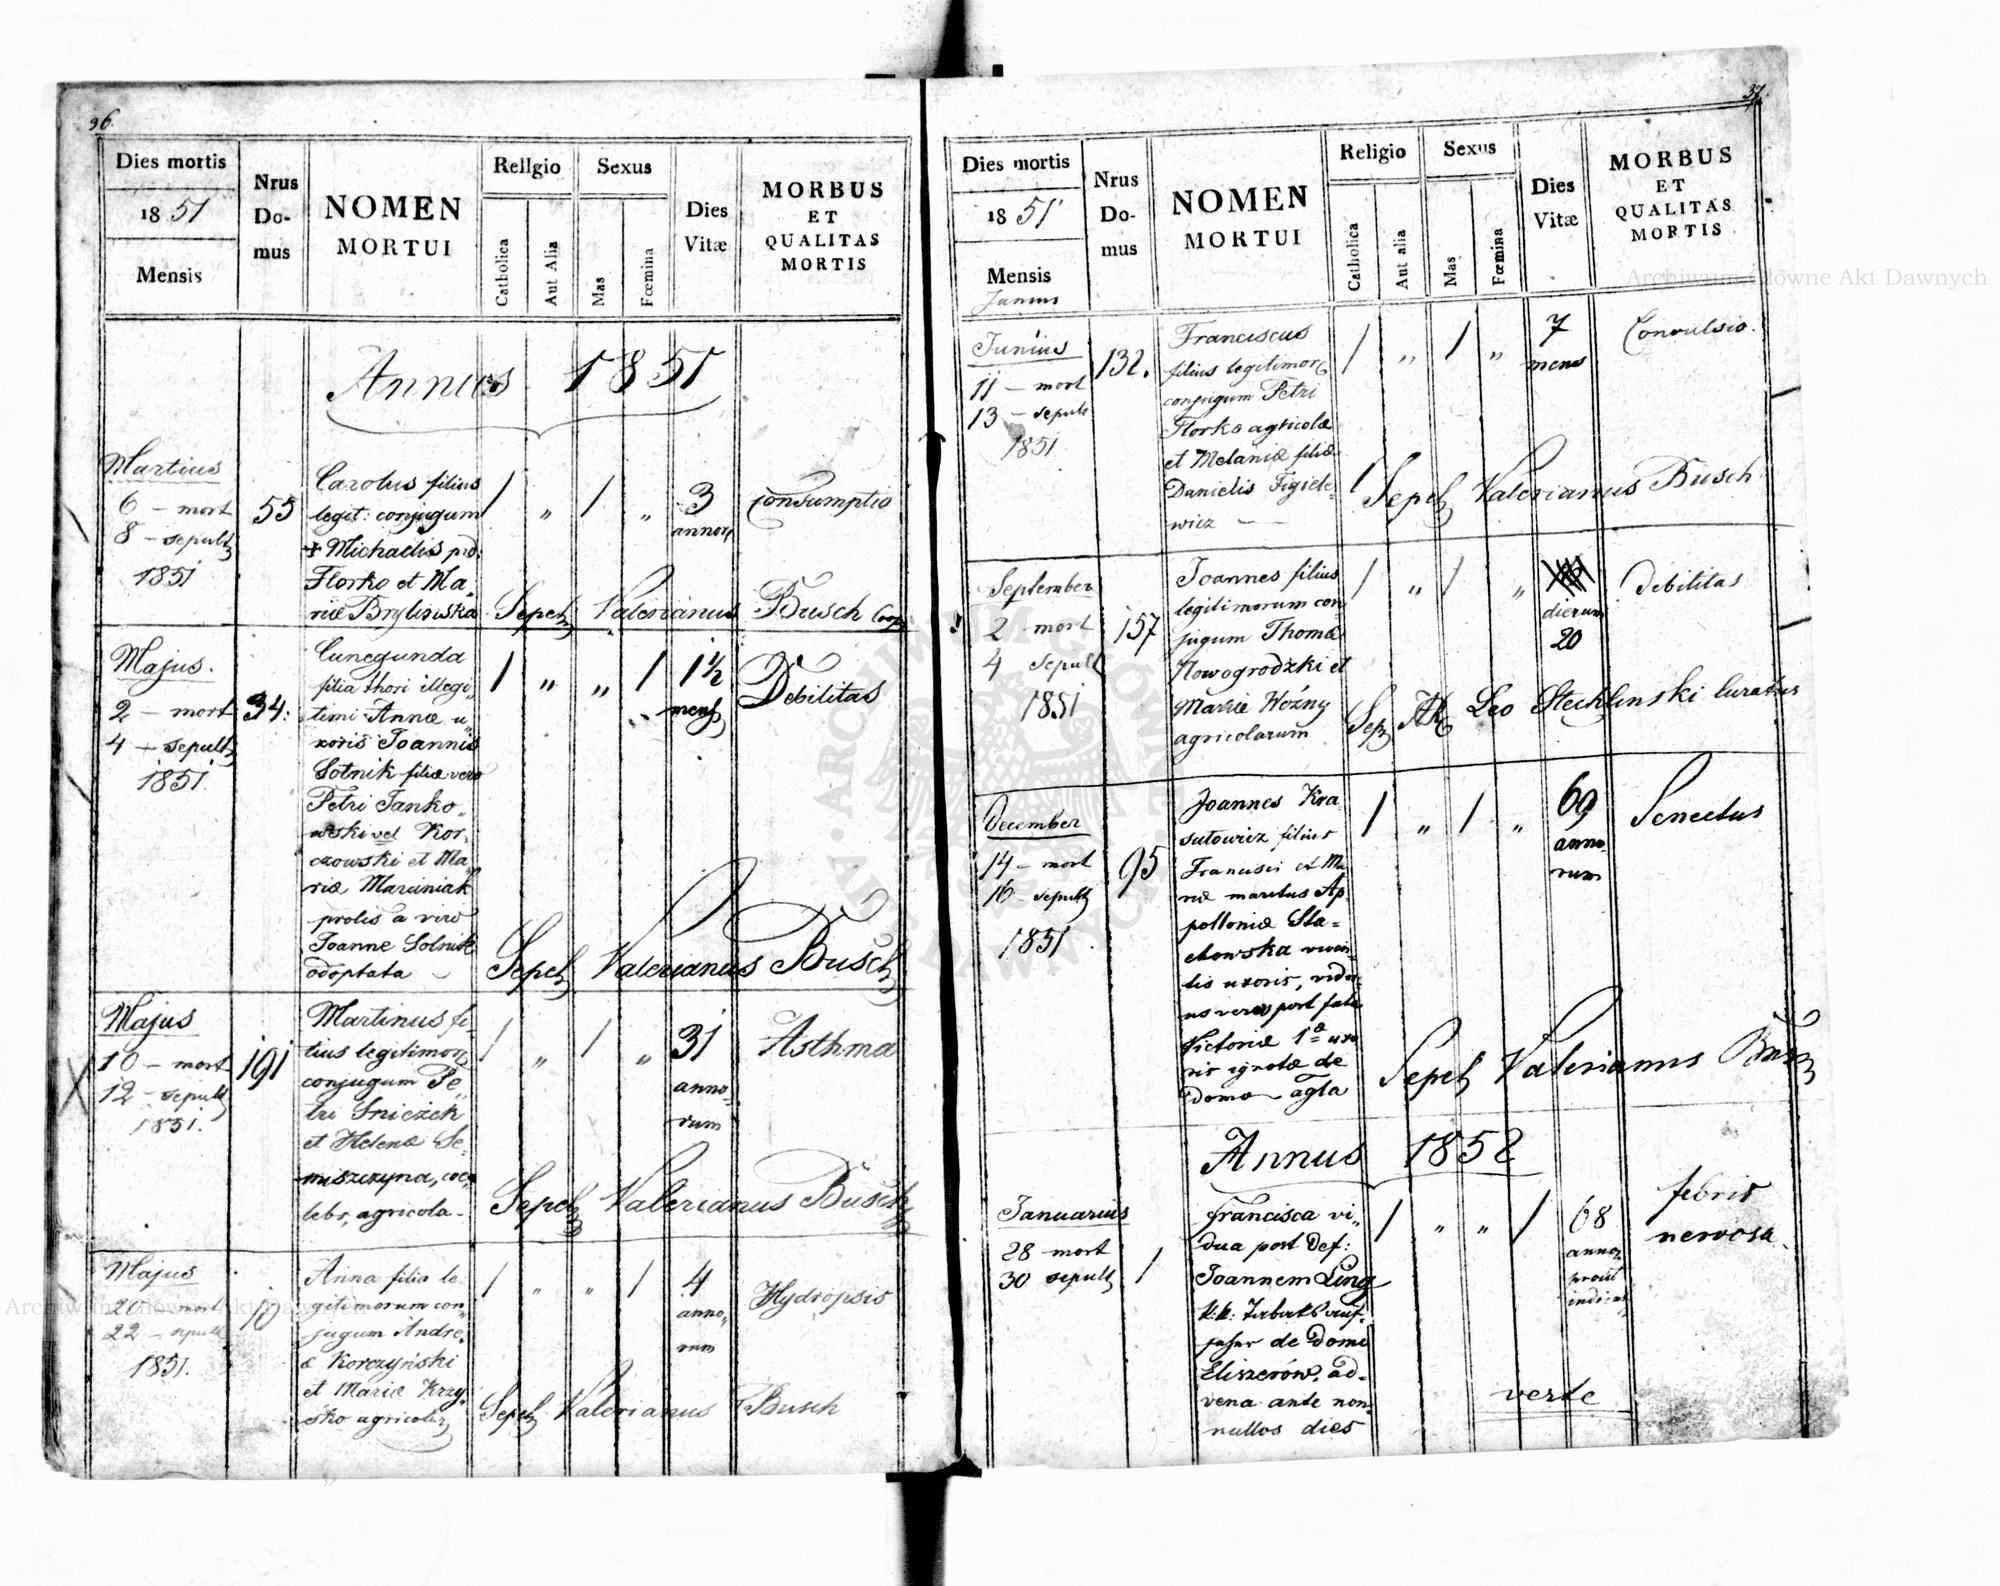 36.
Dies mortis
1851
Mensis
Nrus
Do-
mus
NOMEN
MORTUI
Religio
Catholica
Aut Alia
Sexus
Mas
Fœmina
Dies
Vitæ
MORBUS
ET
QUALITAS
MORTIS
Annus 1851
Martius
6 – mort
8 – sepult
1851
55
Carolus filius
legit: conjugum
+ Michaelis pd:
Florko et Ma„
riæ Brylinska
/ „ / „
3
annor
Consumptio
Sepel Valerianus Busch Coop
Majus.
2 – mort
4 – sepult
1851.
34.
Cunegunda
filia thori illegi„
timi Annæ u„
xoris Joannis
Sotnik filiæ vero
Petri Janko„
wski vel Kor„
czowski et Ma„
riæ Marciniak
prolis a viro
Joanne Sotnik
adoptata –
/ „ „ /
1½
mens
Debilitas
Sepel Valerianus Busch
Majus
10 – mort
12 – sepult
1851.
191
Martinus fi„
lius legitimor
conjugum Pe„
tri Sniezek
et Helenæ Se„
miszczyna, cæ„
lebs, agricola –
/ „ / „
31
anno„
rum
Asthma
Sepel Valerianus Busch
Majus
20 – mort
22 – sepult
1851.
10
Anna filia le„
gitimorum con„
jugum Andre„
æ Korczyński
et Mariæ Krzy„
sko agricolar
/ „ „ /
4
anno„
rum
Hydropsis
Sepel Valerianus Busch
37.
Dies mortis
1851
Mensis
Junius
Nrus
Do-
mus
NOMEN
MORTUI
Religio
Catholica
Aut alia
Sexus
Mas
Fœmina
Dies
Vitæ
MORBUS
ET
QUALITAS
MORTIS
Junius
11 – mort
13 – sepult
1851
132.
Franciscus
filius legitimor
conjugum Petri
Florko agricolæ
et Melaniæ filiæ
Danielis Figiele„
wicz –
/ „ / „
7
mens
Convulsio.
Sepel Valerianus Busch
September
2 – mort
4 sepult
1851
157
Joannes filius
legitimorum con
jugum Thomæ
Nowogrodzki et
Mariæ Woźny
agricolarum
/ „ / „
dierum
20
Debilitas
Sep Leo Stechlinski Curatus
December
14 – mort
16 – sepult
1851
95
Joannes Kra„
sutowicz filius
Francisci et Ma
riæ maritus Ap„
polloniæ Sta„
chowska viven„
tis uxoris, vidu„
us vero post fata
Victoriæ 1æ uxo
ris ignotæ de
domo – agla
/ „ / „
69
anno„
rum
Senectus
Sepel Valerianus Busch
Annus 1852
Januarius
28 mort
30 sepult
1
Francisca vi„
dua post Def:
Joannem Ling
de Domo
Eliszerów, ad-
vena ante non„
nullos dies
/ „ „ /
68
annor
prout
indicat
febris
nervosa.
verte
Archiwum Główne Akt Dawnych
Archiwum Główne Akt Dawnych
ARCHIWUM GŁÓWNE AKT DAWNYCH